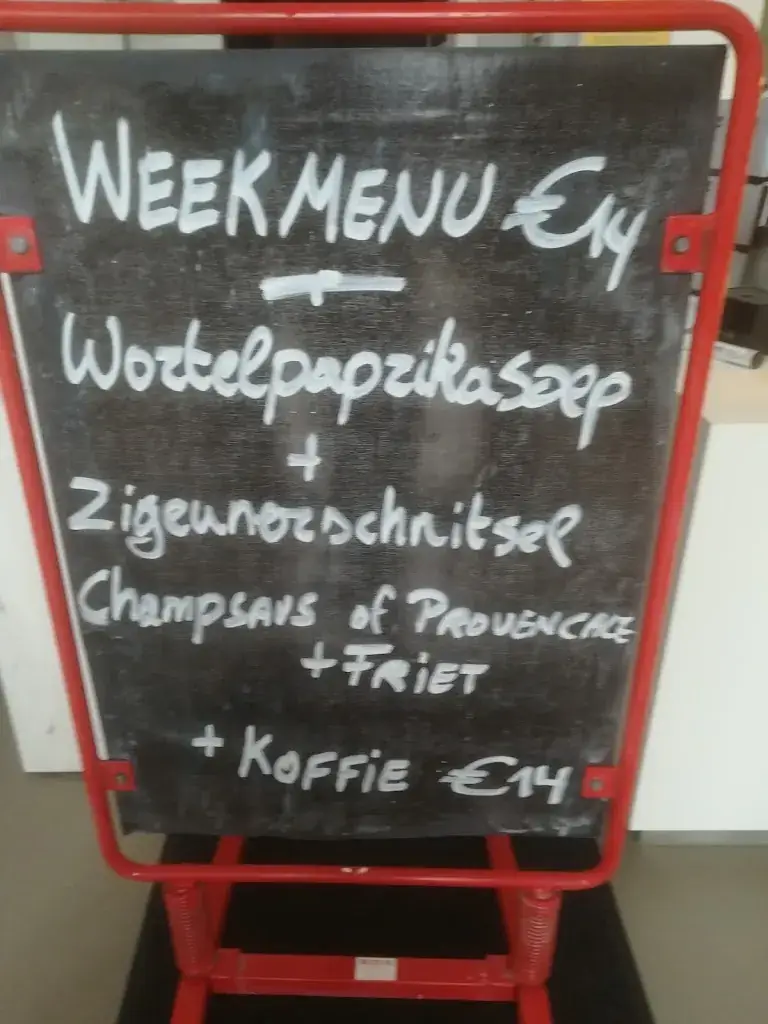 WEEKMENU €14
Wortelpaprikasoep
+
Zigeunerschnitsel
Champsaus of PROVENCALE
+ FRIET
+ KOFFIE €14